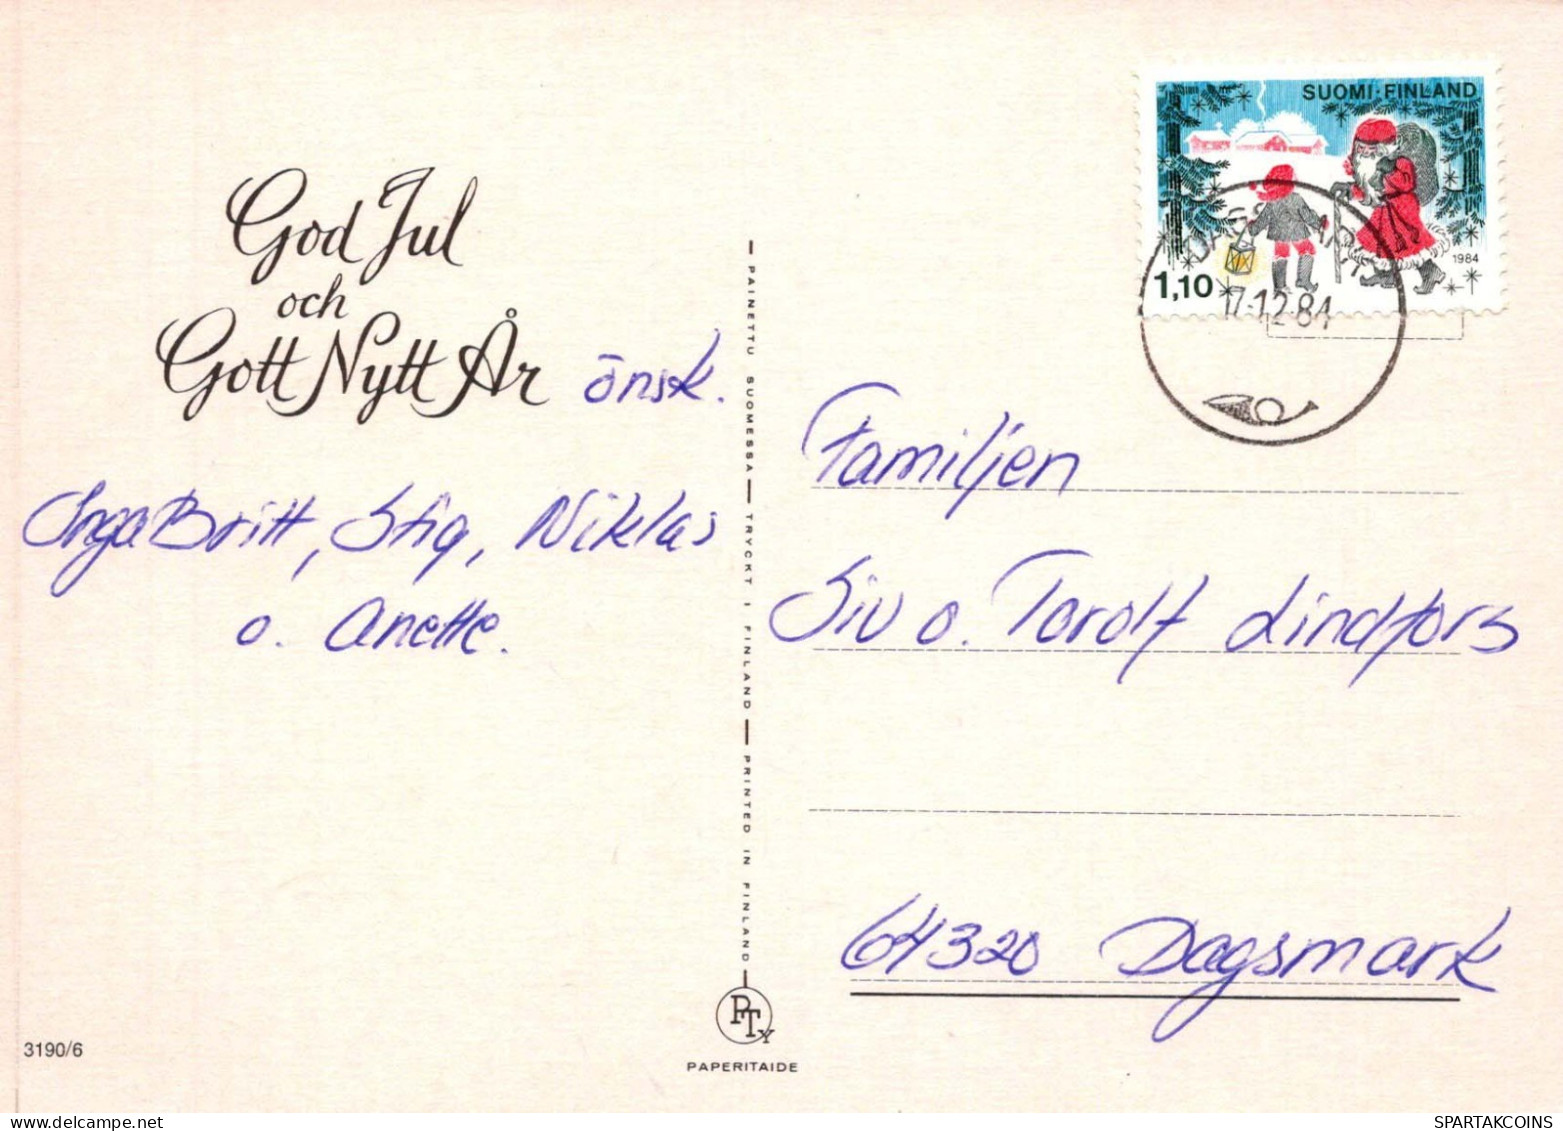 God Jul
och
Gott Nytt År önsk.
IngaBritt, Stig, Niklas
o. Anette.
SUOMI-FINLAND
1984
1,10
DAGSMARK
17.12.84
Familjen
Siv o. Torolf Lindfors
64320 Dagsmark
PAINETTU SUOMESSA — TRYCKT I FINLAND — PRINTED IN FINLAND
PTY
PAPERITAIDE
3190/6
SPARTAKCOINS